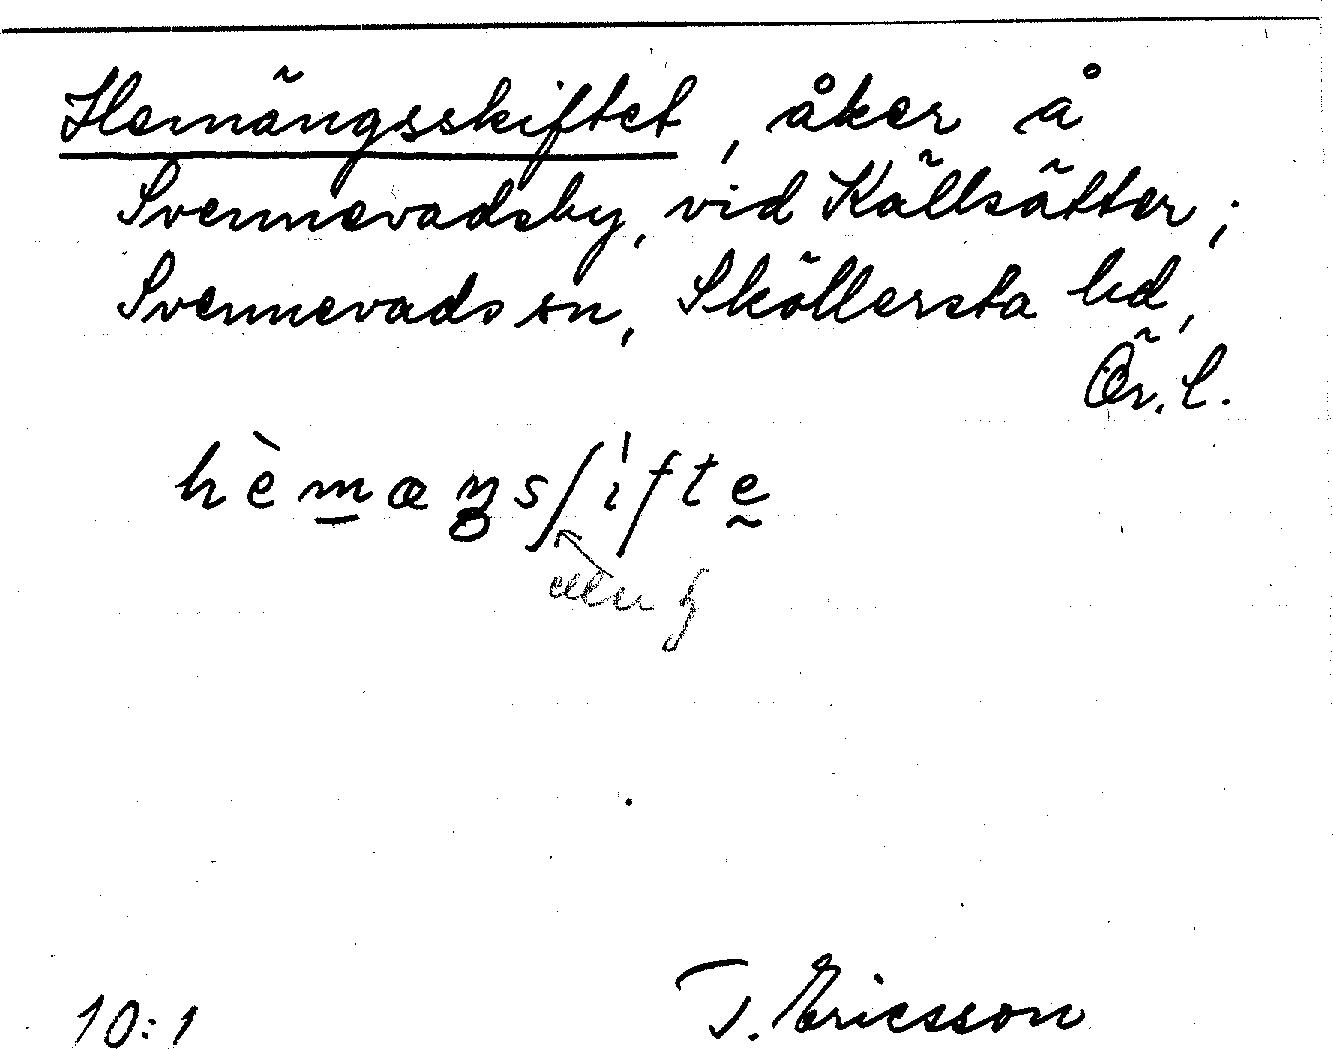 Hemängsskiftet, åker å
Svennevadsby, vid Källsätter;
Svennevads sn, Sköllersta hd,
Ör. l.
hèmæŋsʃifte
10:1
T. Ericsson